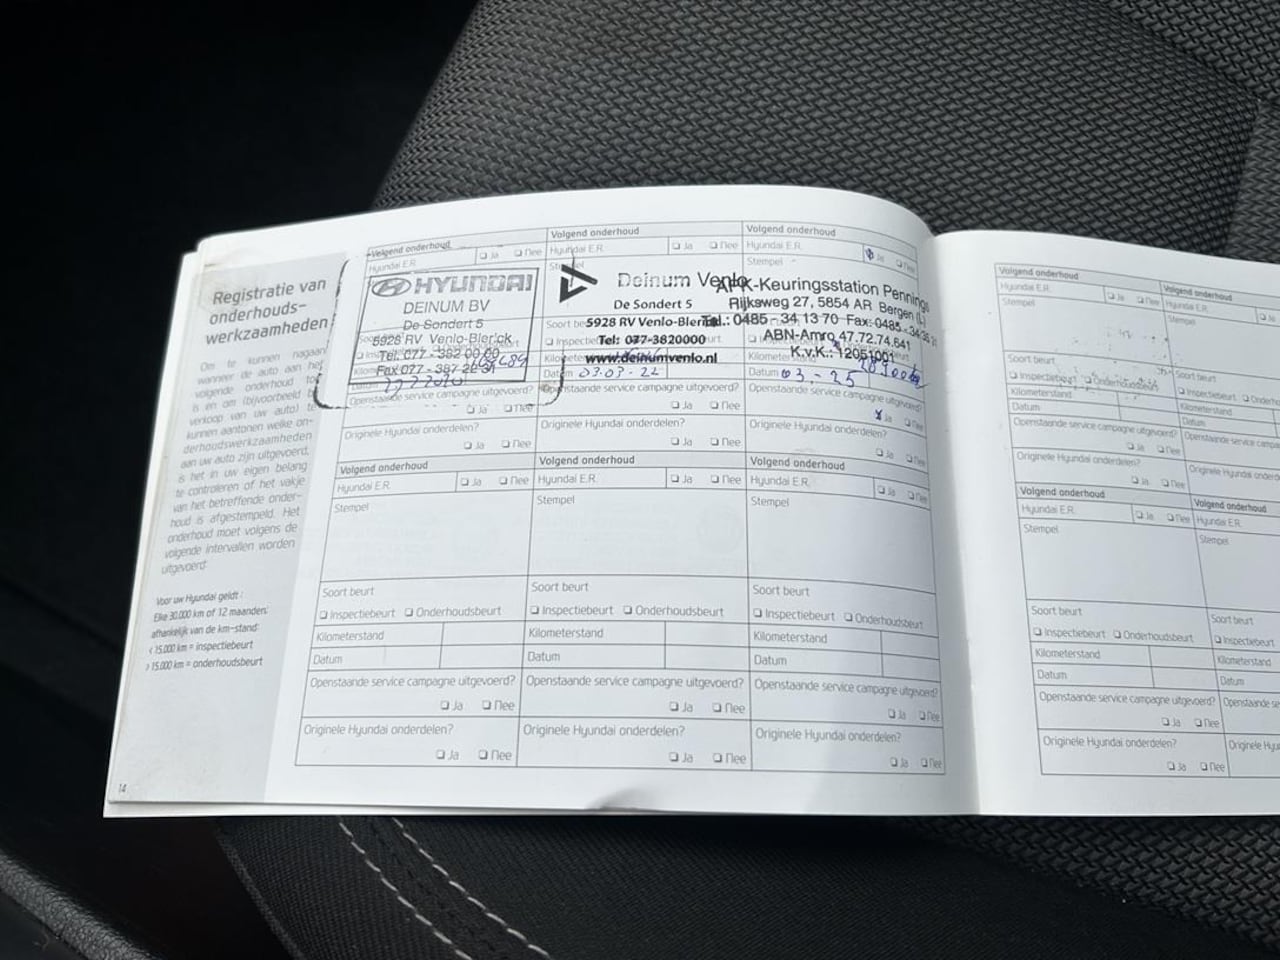 Registratie van
onderhouds-
werkzaamheden
Om te kunnen nagaan
wanneer de auto aan het
volgende onderhoud toe
is en om (bijvoorbeeld bij
verkoop van uw auto) te
kunnen aantonen welke on-
derhoudswerkzaamheden
aan uw auto zijn uitgevoerd,
is het in uw eigen belang
te controleren of het vakje
van het betreffende onder-
houd is afgestempeld. Het
onderhoud moet volgens de
volgende intervallen worden
uitgevoerd:
Voor uw Hyundai geldt :
Elke 30.000 km of 12 maanden;
afhankelijk van de km-stand:
< 15.000 km = inspectiebeurt
> 15.000 km = onderhoudsbeurt
14
Volgend onderhoud
Hyundai E.R. Ja Nee
HYUNDAI
DEINUM BV
De Sondert 5
5928 RV Venlo-Blerick
Tel. 077 - 382 00 00
Fax 077 - 387 22 31
Openstaande service campagne uitgevoerd?
Ja Nee
Originele Hyundai onderdelen?
Ja Nee
Volgend onderhoud
Hyundai E.R. Ja Nee
Deinum Venlo
De Sondert 5
5928 RV Venlo-Blerick
Tel: 077-3820000
www.deinumvenlo.nl
Datum 03-03-22
Openstaande service campagne uitgevoerd?
Ja Nee
Originele Hyundai onderdelen?
Ja Nee
Volgend onderhoud
Hyundai E.R. Ja Nee
Stempel
APK-Keuringsstation Pennings
Rijksweg 27, 5854 AR Bergen (L)
Tel.: 0485 - 34 13 70 Fax: 0485 - 34
ABN-Amro 47.72.74.641
K.v.K.: 12051001
Kilometerstand
Datum 03-25
Openstaande service campagne uitgevoerd?
Ja Nee
Originele Hyundai onderdelen?
Ja Nee
Volgend onderhoud
Hyundai E.R. Ja Nee
Stempel
Soort beurt
Inspectiebeurt Onderhoudsbeurt
Kilometerstand
Datum
Openstaande service campagne uitgevoerd?
Ja Nee
Originele Hyundai onderdelen?
Ja Nee
Volgend onderhoud
Hyundai E.R. Ja Nee
Stempel
Soort beurt
Inspectiebeurt Onderhoudsbeurt
Kilometerstand
Datum
Openstaande service campagne uitgevoerd?
Ja Nee
Originele Hyundai onderdelen?
Ja Nee
Volgend onderhoud
Hyundai E.R. Ja Nee
Stempel
Soort beurt
Inspectiebeurt Onderhoudsbeurt
Kilometerstand
Datum
Openstaande service campagne uitgevoerd?
Ja Nee
Originele Hyundai onderdelen?
Ja Nee
Volgend onderhoud
Hyundai E.R. Ja Nee
Stempel
Soort beurt
Inspectiebeurt Onderhoudsbeurt
Kilometerstand
Datum
Openstaande service campagne uitgevoerd?
Ja Nee
Originele Hyundai onderdelen?
Ja Nee
Volgend onderhoud
Hyundai E.R.
Stempel
Soort beurt
Inspectiebeurt
Kilometerstand
Datum
Openstaande service
Originele Hyundai
Volgend onderhoud
Hyundai E.R. Ja Nee
Stempel
Soort beurt
Inspectiebeurt Onderhoudsbeurt
Kilometerstand
Datum
Openstaande service campagne uitgevoerd?
Ja Nee
Originele Hyundai onderdelen?
Ja Nee
Volgend onderhoud
Hyundai E.R.
Stempel
Soort beurt
Inspectiebeurt
Kilometerstand
Datum
Openstaande
Originele